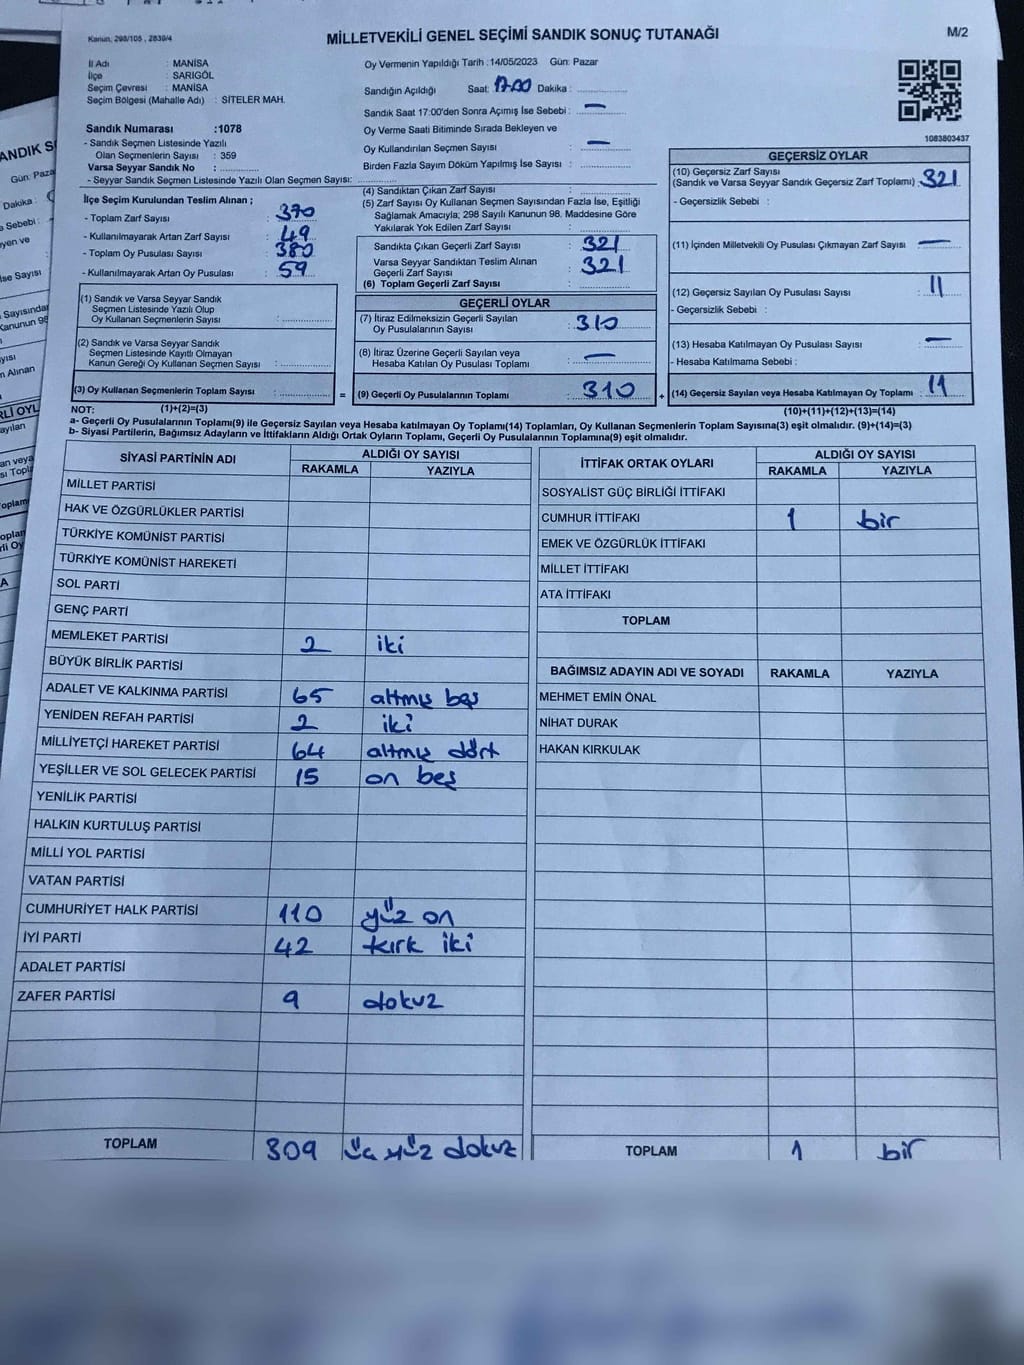 Kanun, 298/105 , 2839/4
MİLLETVEKİLİ GENEL SEÇİMİ SANDIK SONUÇ TUTANAĞI
M/2
İl Adı : MANİSA
İlçe : SARIGÖL
Seçim Çevresi : MANİSA
Seçim Bölgesi (Mahalle Adı) : SİTELER MAH.
Sandık Numarası :1078
- Sandık Seçmen Listesinde Yazılı
Olan Seçmenlerin Sayısı : 359
Varsa Seyyar Sandık No :
- Seyyar Sandık Seçmen Listesinde Yazılı Olan Seçmen Sayısı:
Oy Vermenin Yapıldığı Tarih :14/05/2023 Gün: Pazar
Sandığın Açıldığı Saat: 17:00 Dakika :
Sandık Saat 17:00'den Sonra Açımış İse Sebebi : —
Oy Verme Saati Bitiminde Sırada Bekleyen ve
Oy Kullandırılan Seçmen Sayısı : —
Birden Fazla Sayım Döküm Yapılmış İse Sayısı :
1083803437
İlçe Seçim Kurulundan Teslim Alınan ;
- Toplam Zarf Sayısı : 370
- Kullanılmayarak Artan Zarf Sayısı : 49
- Toplam Oy Pusulası Sayısı : 380
- Kullanılmayarak Artan Oy Pusulası : 59
(1) Sandık ve Varsa Seyyar Sandık
Seçmen Listesinde Yazılı Olup
Oy Kullanan Seçmenlerin Sayısı :
(2) Sandık ve Varsa Seyyar Sandık
Seçmen Listesinde Kayıtlı Olmayan
Kanun Gereği Oy Kullanan Seçmen Sayısı :
(3) Oy Kullanan Seçmenlerin Toplam Sayısı :
(1)+(2)=(3)
(4) Sandıktan Çıkan Zarf Sayısı :
(5) Zarf Sayısı Oy Kullanan Seçmen Sayısından Fazla İse, Eşitliği
Sağlamak Amacıyla; 298 Sayılı Kanunun 98. Maddesine Göre
Yakılarak Yok Edilen Zarf Sayısı :
Sandıkta Çıkan Geçerli Zarf Sayısı : 321
Varsa Seyyar Sandıktan Teslim Alınan
Geçerli Zarf Sayısı : 321
(6) Toplam Geçerli Zarf Sayısı :
GEÇERLİ OYLAR
(7) İtiraz Edilmeksizin Geçerli Sayılan
Oy Pusulalarının Sayısı : 310
(8) İtiraz Üzerine Geçerli Sayılan veya
Hesaba Katılan Oy Pusulası Toplamı : —
= (9) Geçerli Oy Pusulalarının Toplamı : 310
GEÇERSİZ OYLAR
(10) Geçersiz Zarf Sayısı
(Sandık ve Varsa Seyyar Sandık Geçersiz Zarf Toplamı) : 321
- Geçersizlik Sebebi :
(11) İçinden Milletvekili Oy Pusulası Çıkmayan Zarf Sayısı : —
(12) Geçersiz Sayılan Oy Pusulası Sayısı : 11
- Geçersizlik Sebebi :
(13) Hesaba Katılmayan Oy Pusulası Sayısı : —
- Hesaba Katılmama Sebebi :
+ (14) Geçersiz Sayılan veya Hesaba Katılmayan Oy Toplamı : 11
(10)+(11)+(12)+(13)=(14)
NOT:
a- Geçerli Oy Pusulalarının Toplamı(9) ile Geçersiz Sayılan veya Hesaba katılmayan Oy Toplamı(14) Toplamları, Oy Kullanan Seçmenlerin Toplam Sayısına(3) eşit olmalıdır. (9)+(14)=(3)
b- Siyasi Partilerin, Bağımsız Adayların ve İttifakların Aldığı Ortak Oyların Toplamı, Geçerli Oy Pusulalarının Toplamına(9) eşit olmalıdır.
SİYASİ PARTİNİN ADI ALDIĞI OY SAYISI
RAKAMLA YAZIYLA
MİLLET PARTİSİ
HAK VE ÖZGÜRLÜKLER PARTİSİ
TÜRKİYE KOMÜNİST PARTİSİ
TÜRKİYE KOMÜNİST HAREKETİ
SOL PARTİ
GENÇ PARTİ
MEMLEKET PARTİSİ 2 iki
BÜYÜK BİRLİK PARTİSİ
ADALET VE KALKINMA PARTİSİ 65 altmış beş
YENİDEN REFAH PARTİSİ 2 iki
MİLLİYETÇİ HAREKET PARTİSİ 64 altmış dört
YEŞİLLER VE SOL GELECEK PARTİSİ 15 on beş
YENİLİK PARTİSİ
HALKIN KURTULUŞ PARTİSİ
MİLLİ YOL PARTİSİ
VATAN PARTİSİ
CUMHURİYET HALK PARTİSİ 110 yüz on
İYİ PARTİ 42 kırk iki
ADALET PARTİSİ
ZAFER PARTİSİ 9 dokuz
TOPLAM 309 üç yüz dokuz
İTTİFAK ORTAK OYLARI ALDIĞI OY SAYISI
RAKAMLA YAZIYLA
SOSYALİST GÜÇ BİRLİĞİ İTTİFAKI
CUMHUR İTTİFAKI 1 bir
EMEK VE ÖZGÜRLÜK İTTİFAKI
MİLLET İTTİFAKI
ATA İTTİFAKI
TOPLAM
BAĞIMSIZ ADAYIN ADI VE SOYADI RAKAMLA YAZIYLA
MEHMET EMİN ÖNAL
NİHAT DURAK
HAKAN KIRKULAK
TOPLAM 1 bir